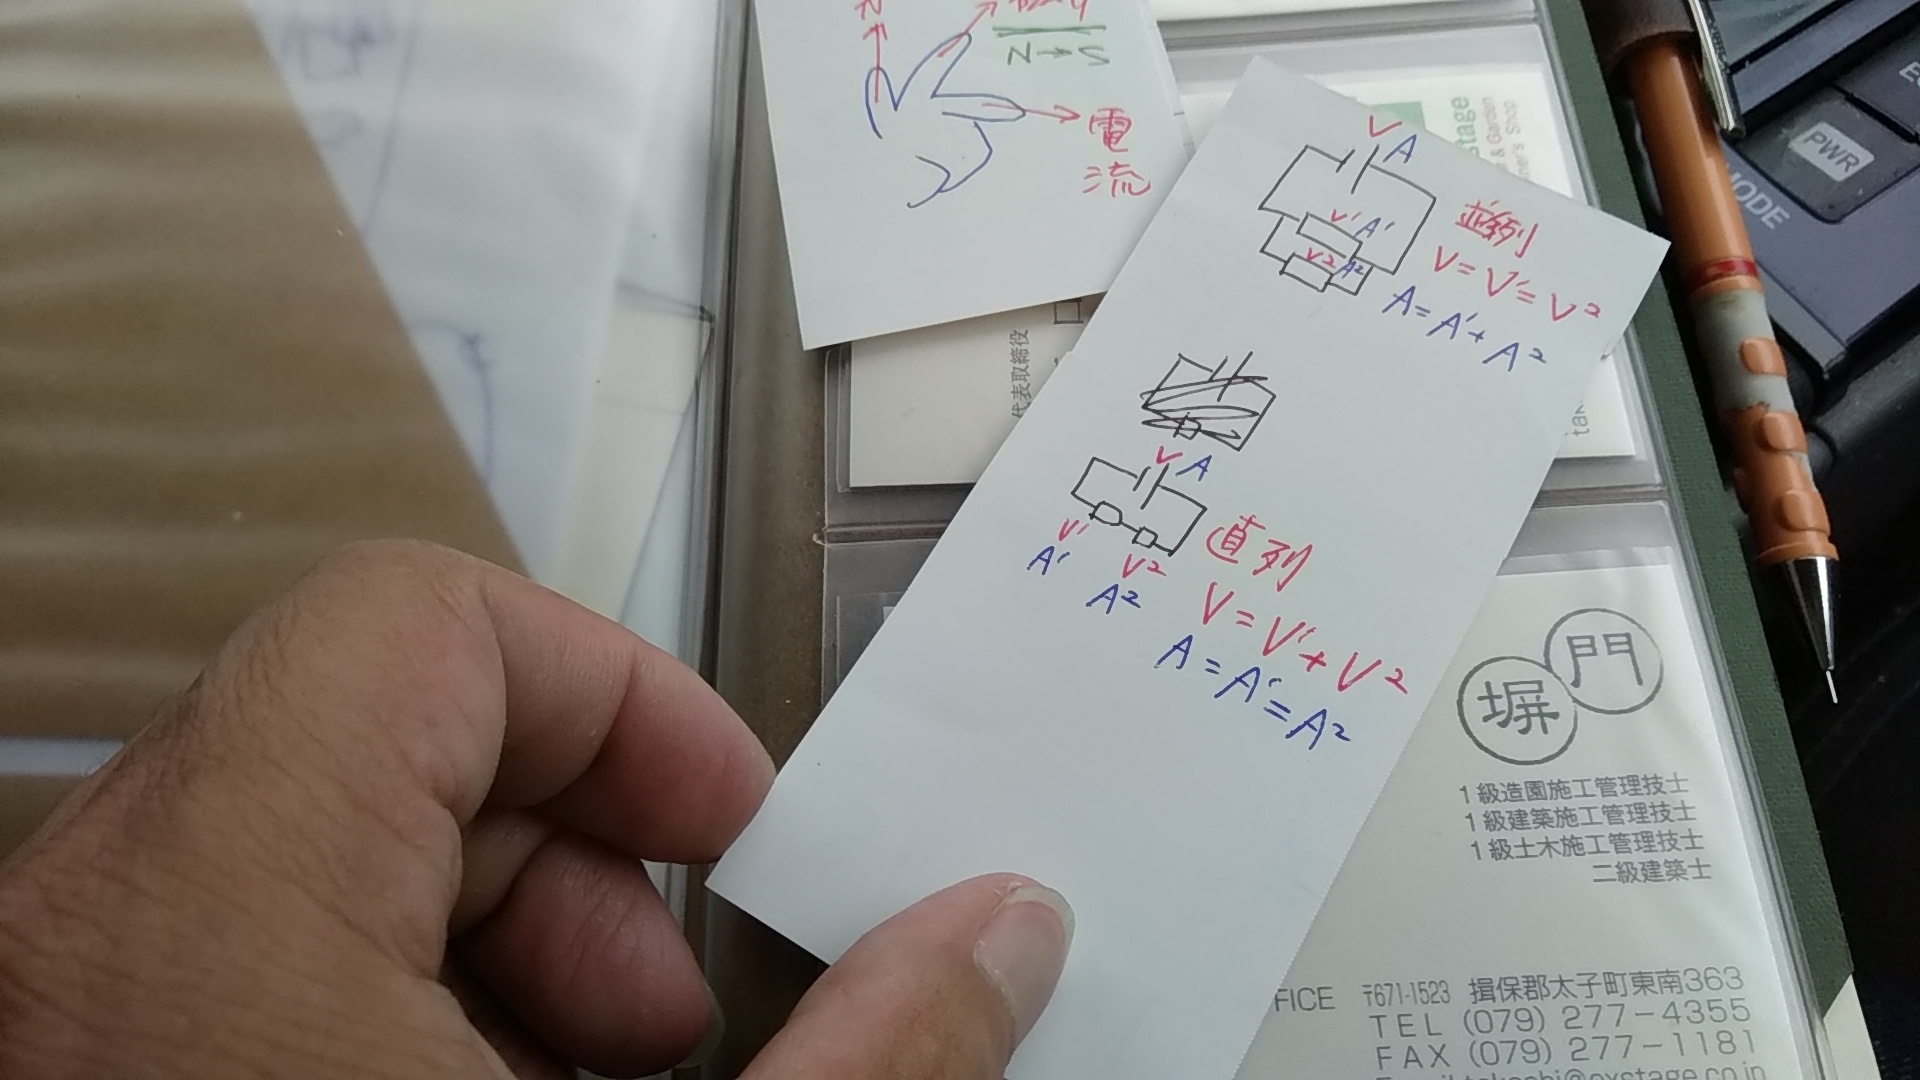 N → S
電
流
V A
V' A'
V2 A2
並列
V = V' = V2
A = A' + A2
V A
V'
A'
V2
A2
直列
V = V' + V2
A = A' = A2
代表取締役
stage
& Garden
Shop
PWR
MODE
門
塀
1級造園施工管理技士
1級建築施工管理技士
1級土木施工管理技士
二級建築士
FICE 〒671-1523 揖保郡太子町東南363
TEL (079) 277-4355
FAX (079) 277-1181